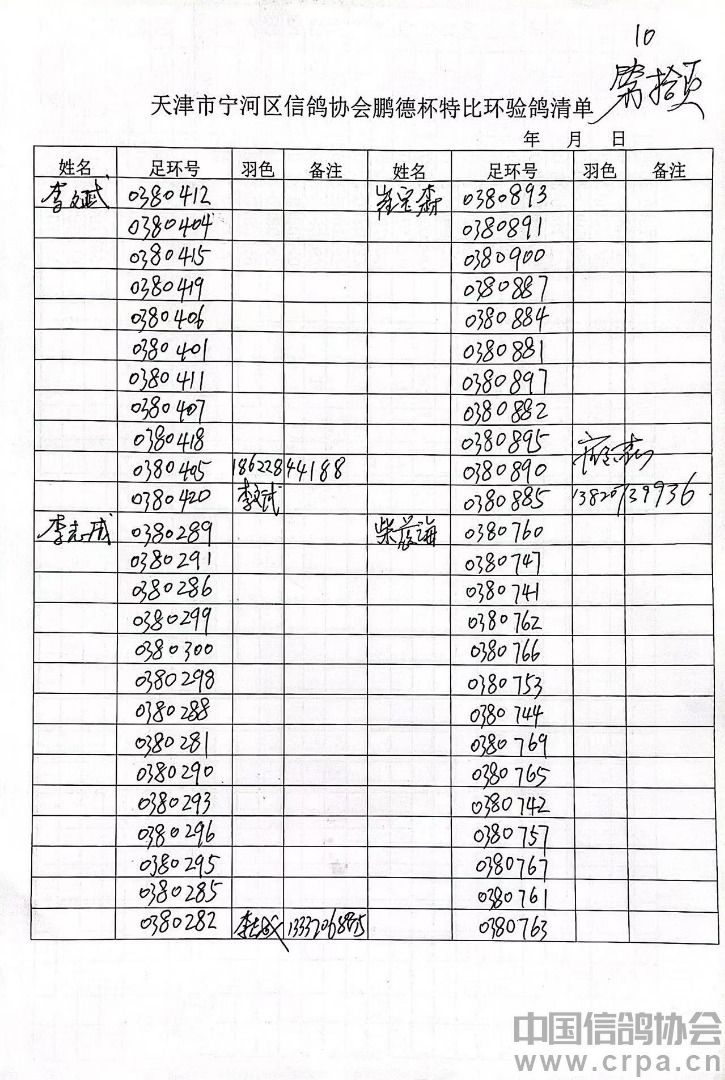 10
第拾页
天津市宁河区信鸽协会鹏德杯特比环验鸽清单
年 月 日
姓名 足环号 羽色 备注 姓名 足环号 羽色 备注
李文斌 0380412 崔宝森 0380893
0380404 0380891
0380415 0380900
0380419 0380887
0380406 0380884
0380401 0380881
0380411 0380897
0380407 0380882
0380418 0380895
0380405 18622844188 0380890
0380420 0380885 13820739936
李志成 0380289 0380760
0380291 0380747
0380286 0380741
0380299 0380762
0380300 0380766
0380298 0380753
0380288 0380744
0380281 0380769
0380290 0380765
0380293 0380742
0380296 0380757
0380295 0380767
0380285 0380761
0380282 李志成 0380763
中国信鸽协会
www.crpa.cn